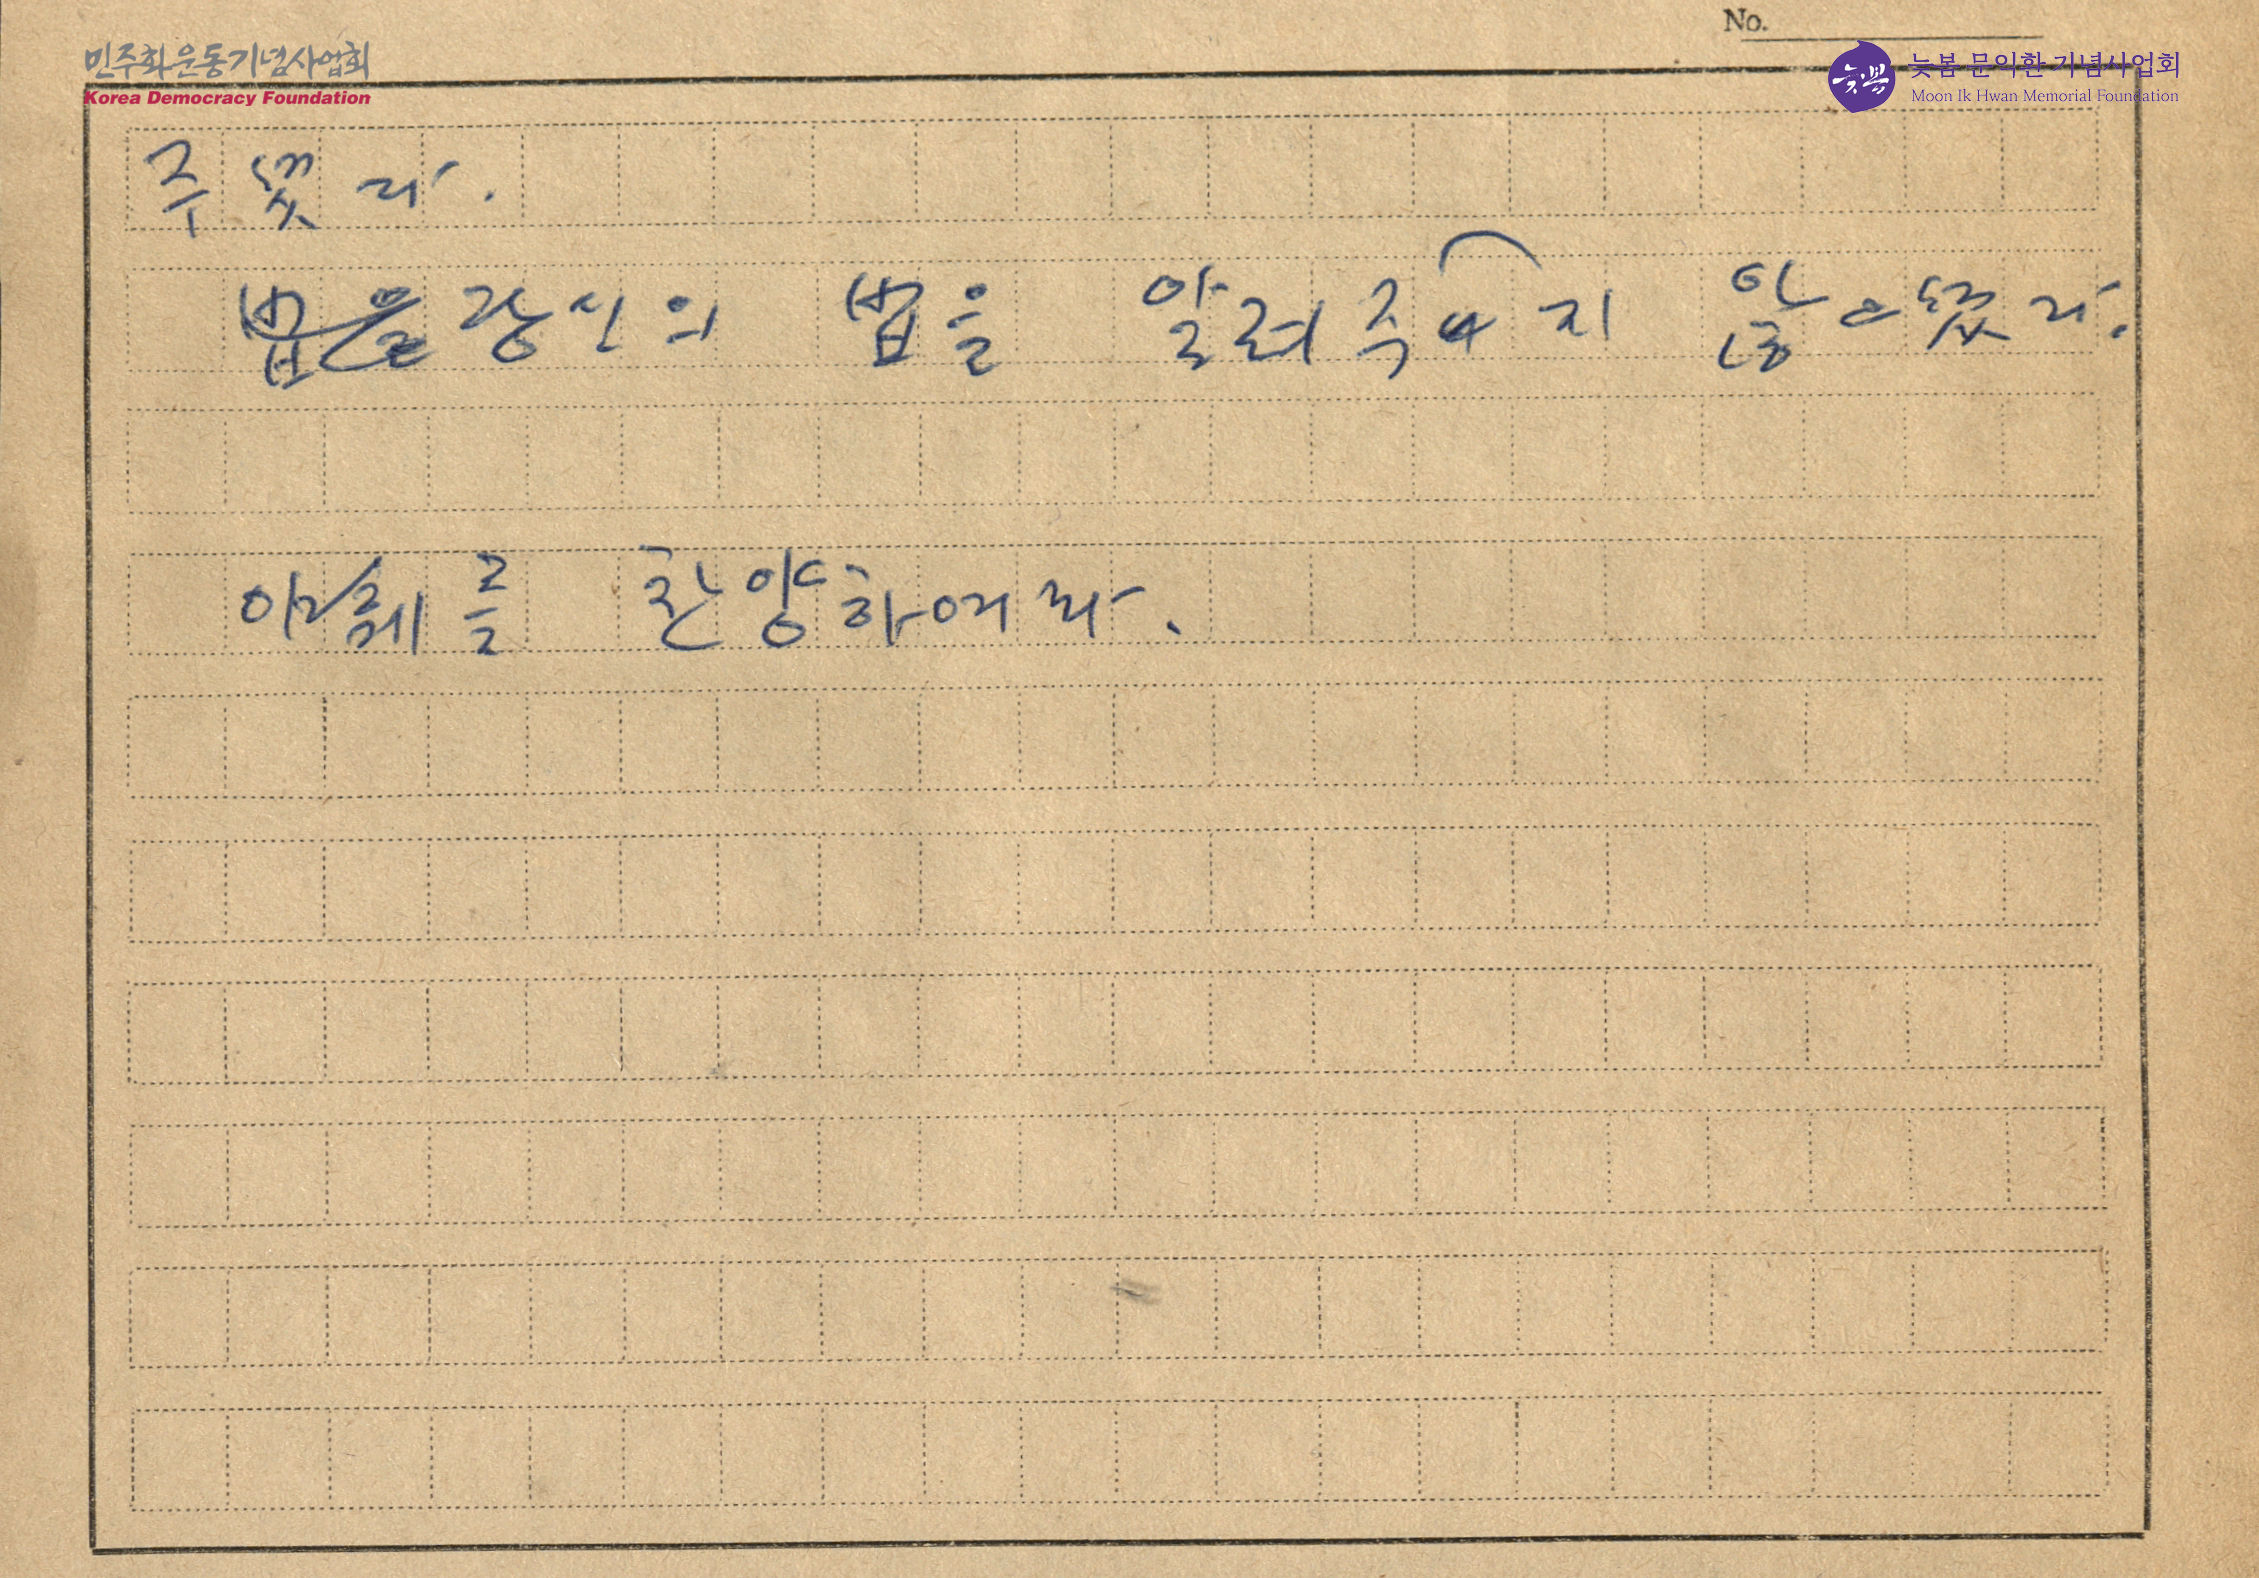 No.
민주화운동기념사업회
Korea Democracy Foundation
늦봄
늦봄 문익환 기념사업회
Moon Ik Hwan Memorial Foundation
주셨다.
당신의 법을 알려주지 않으셨다.
야훼를 찬양하여라.